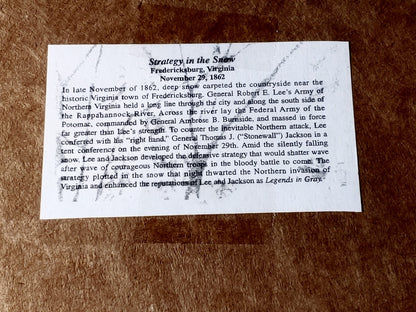 Strategy in the Snow
Fredericksburg, Virginia
November 29, 1862
In late November of 1862, deep snow carpeted the countryside near the
historic Virginia town of Fredericksburg. General Robert E. Lee's Army of
Northern Virginia held a long line through the city and along the south side of
the Rappahannock River. Across the river lay the Federal Army of the
Potomac, commanded by General Ambrose B. Burnside, and massed in force
far greater than Lee's strength. To counter the inevitable Northern attack, Lee
conferred with his "right hand," General Thomas J. ("Stonewall") Jackson in a
tent conference on the evening of November 29th. Amid the silently falling
snow, Lee and Jackson developed the defensive strategy that would shatter wave
after wave of courageous Northern troops in the bloody battle to come. The
strategy plotted in the snow that night thwarted the Northern invasion of
Virginia and enhanced the reputations of Lee and Jackson as Legends in Gray.